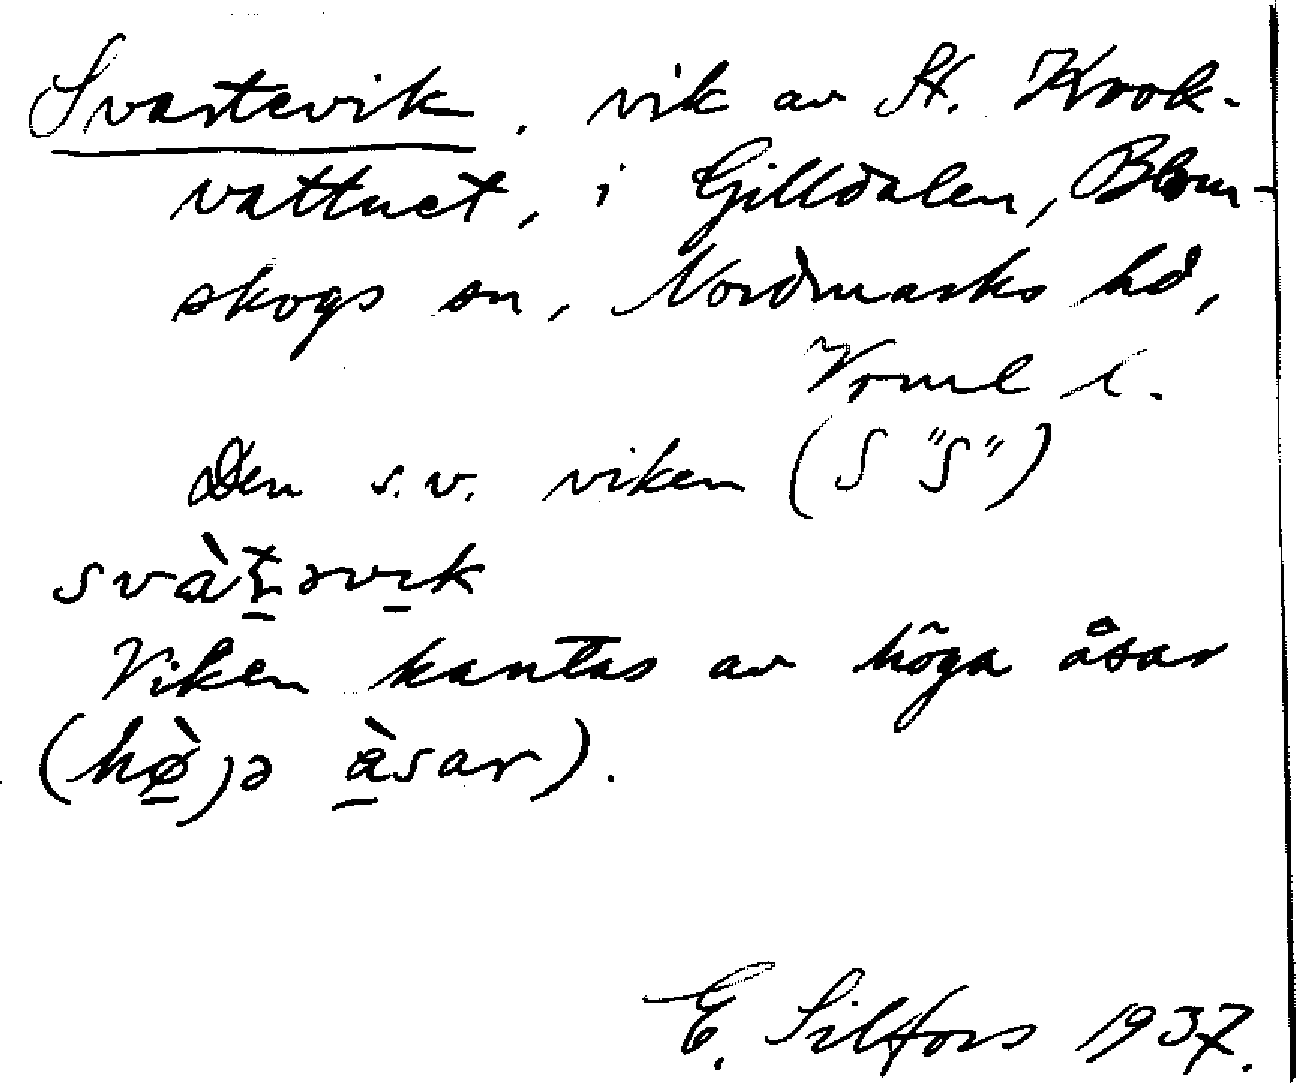 Svartevik, vik av St. Krok-
vattnet, i Gilldalen, Blom-
skogs sn, Nordmarks hd,
Vrml l.
Den s.v. viken (S "S")
svàt̠əvɪ̠k
Viken kantas av höga åsar
(hø̠̀jə à̠sar).
E. Silfors 1937.